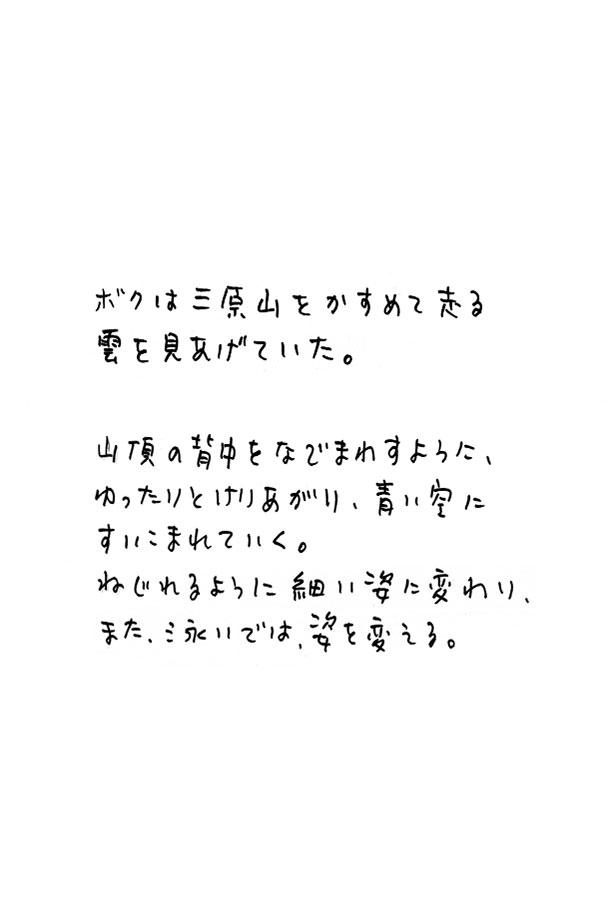 ボクは三原山をかすめて走る
雲を見あげていた。
山頂の背中をなでまわすように、
ゆったりとけりあがり、青い空に
すいこまれていく。
ねじれるように細い姿に変わり、
また、泳いでは、姿を変える。